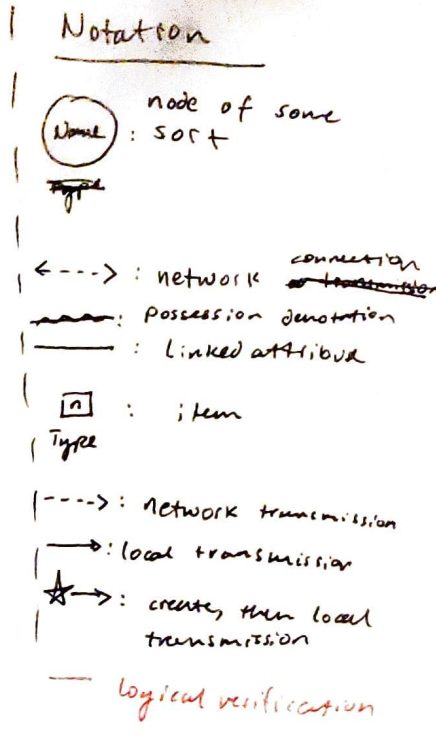 Notation
Name : node of some
sort
Type
<---> : network connection
or transmission
: possession denotation
: linked attribute
n : item
Type
----> : network transmission
→ : local transmission
☆→ : create, then local
transmission
— logical verification